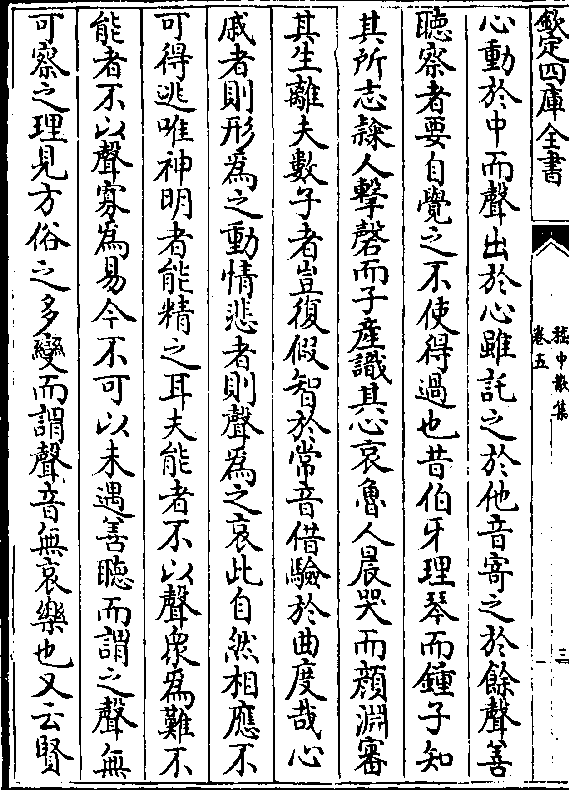 欽定四庫全書
嵇中散集
卷五
三
心動於中而聲出於心雖託之於他音寄之於餘聲善
聽察者要自覺之不使得過也昔伯牙理琴而鍾子知
其所志隸人擊磬而子產識其心哀魯人晨哭而顔淵審
其生離夫數子者豈復假智於常音借驗於曲度哉心
戚者則形為之動情悲者則聲為之哀此自然相應不
可得逃唯神明者能精之耳夫能者不以聲衆為難不
能者不以聲寡為易今不可以未遇善聽而謂之聲無
可察之理見方俗之多變而謂聲音無哀樂也又云賢